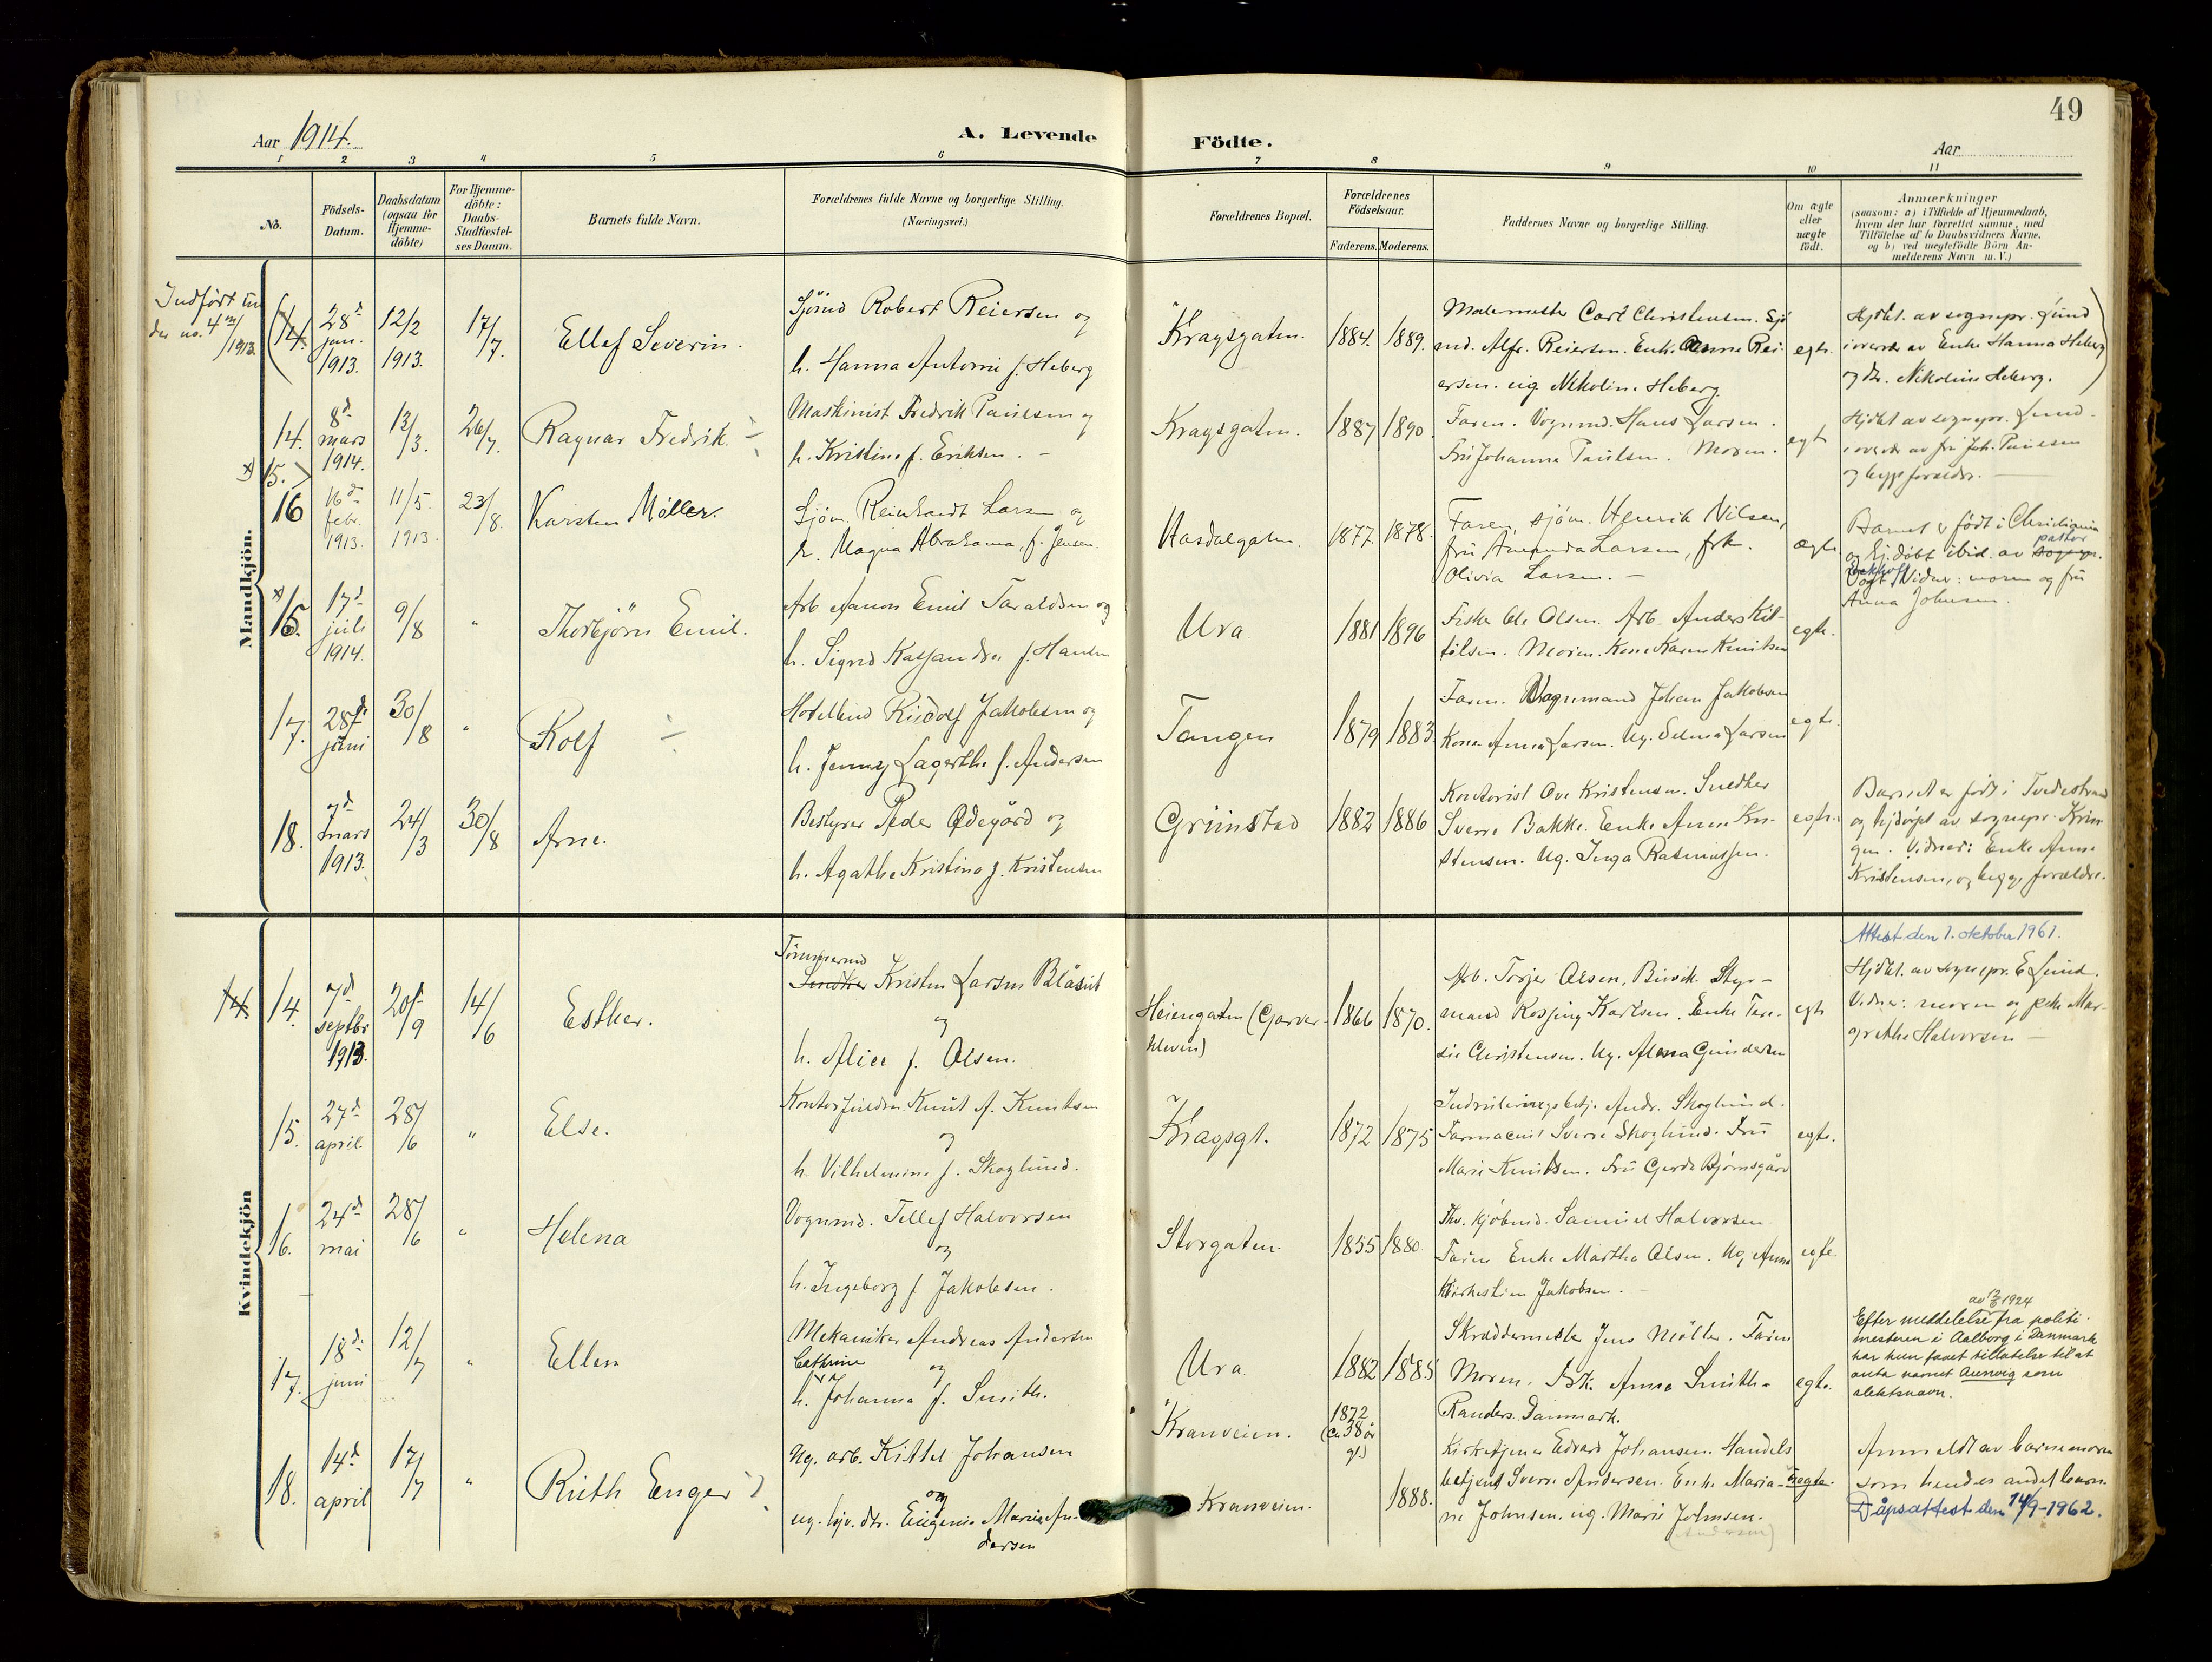 49
Aar 1914.
A. Levende Födte.
Aar
1 2 3 4 5 6 7 8 9 10 11
No.
Födsels-
Datum.
Daabsdatum
(ogsaa for
Hjemme-
döbte)
For Hjemme-
döbte:
Daabs-
Stadfæstel-
ses Datum.
Barnets fulde Navn.
Forældrenes fulde Navne og borgerlige Stilling.
(Næringsvei.)
Forældrenes Bopæl.
Forældrenes
Födselsaar.
Faderens. Moderens.
Faddernes Navne og borgerlige Stilling.
Om ægte
eller
uægte
födt.
Anmærkninger
(saasom: a) i Tilfælde af Hjemmedaab,
hvem der har forrettet samme, med
Tilföielse af to Daabsvidners Navne,
og b) ved uægtefödte Börn An-
melderens Navn m. V.)
Mandkjön.
Indført un
der no. 4 1913.
14.
28d
jan.
1913.
12/2
1913.
17/7.
Ellef Severin.
Sjömd Robert Reiersen og
h. Hanna Antonie f. Heberg
Kragsgaten.
1884. 1889.
Malermester Carl Christensen. Sjö
md. Alfr. Reiersen. Enke Anna Rei-
ersen. ug Nikoline Heberg.
egte.
Hjdbt. av sognepr. Lund
i overvær av Enke Hanna Heberg
og Nikoline Heberg.
14.
8d
mars
1914.
13/3.
26/7.
Ragnar Fredrik.
Maskinist Fredrik Paulsen og
h. Kristine f. Eriksen.
Kragsgaten.
1887 1890.
Faren. Vognmd. Hans Larsen.
Fru Johanna Paulsen. Moren.
egt
Hjdbt av sognepr. Lund
i overvær av fru Joh. Paulsen
og begge foreldre.
x) 15. >
16
16d
febr.
1913.
11/5.
1913.
23/8.
Karsten Möller.
Sjöm. Reinhardt Larsen og
h. Magna Abrahama, f. Jensen.
Hasdalgaten.
1877. 1878.
Faren, sjöm. Henrik Nilsen,
fru Amanda Larsen, frk.
Olivia Larsen.
ægte.
Barnet er født i Christiania
og hj.döbt ibid. av pastor sognepr.
Vogt. Vidner: moren og fru
Anna Johnsen.
x) 15.
17d
juli
1914.
9/8
"
Thorbjörn Emil.
Arb Aanon Emil Taraldsen og
h. Sigrid Kasandra f. Hansen
Ura
1881 1896
Fisker Ole Olsen. Arb. Anders Kit-
tilsen. Moren. Kone Karen Knutsen
egte.
17.
28d
juni
30/8
"
Rolf
Hotelleier Rudolf Jakobsen og
h. Jenny Lagertha f. Andersen
Tangen
1879 1883
Faren. Vognmand Johan Jakobsen
Kone Anna Larsen. Ug. Selma Larsen
egte.
18.
7d
mars
1913.
24/3
30/8
Arne.
Bestyrer Peder Ødegård og
h. Agathe Kristine f. Kristensen
Grimstad
1882 1886
Kontorist Ove Kristensen. Snedker
Sverre Bakke. Enke Anne Kri-
stensen. Ug. Inga Rasmussen.
egte.
Barnet er født i Tvedestrand
og hjdöpt av sognepr. Krin
gen. Vidner: Enke Anne
Kristensen, og begge forældre.
Kvindekjön
Attest den 1. oktober 1961.
14. 14.
7d
septbr
1913.
20/9
14/6
Esther.
Tömmermd
Snedker Kristen Larsen Blåsut
og
h. Alice f. Olsen.
Heiengaten (Garver-
kleven)
1866 1870.
Arb. Terje Olsen, Bivik. Styr-
mand Karlsen. Enke Tere-
sie Christensen. Ug. Alma Gundersen
egte
Hjdbt. av sognepr. E Lund.
Vidner: moren og pike Mar-
grethe Halvorsen
15.
27d
april.
28/6
"
Else.
Kontorfuldm. Knut A. Knutsen
og
h. Vilhelmine f. Skoglund.
Kragsgt.
1872 1875
Andr. Skoglund.
Farmaceut Sverre Skoglund. Fru
Marie Knutsen. Fru Gerda Bjørnsgård
egte.
16.
24d
mai
28/6
"
Helena
Vognmd. Tellef Halvorsen
og
h. Ingeborg f Jakobsen.
Storgaten.
1855 1880.
Kjöbmd. Samuel Halvorsen.
Faren Enke Martha Olsen. Ug. Anna
Kirkestien Jakobsen.
egte
17.
18d
juni
12/7
"
Ellen
Mekaniker Andreas Andersen
Cathrine og
h. Johanna f. Smith.
Ura.
1882 1885
Skræddermester Jens Möller. Faren
Moren. Frk. Anna Smith.
Randers. Danmark.
egte.
av 12/5 1924
Efter meddelelse fra politi-
mesteren i Aalborg i Danmark
har hun faaet tillatelse til at
anta navnet Aunvig som
slektsnavn.
18.
14d
april
17/7
"
Ruth Enger
Ug. arb. Kittel Johansen
og
ug. hjv. dtr. Eugenie Marie An-
dersen
Kranveien.
Kranveien.
1872
(ca 38 år
gl.)
1888.
Kirketjener Edvard Johansen. Handels
betjent Sverre Andersen. Enke Maria-
ne Johnsen. ug. Marie Johnsen.
(Andersen)
uegte.
Anmeldt av barnemoren
som hendes andet barn.
Dåpsattest den 14/9-1962.